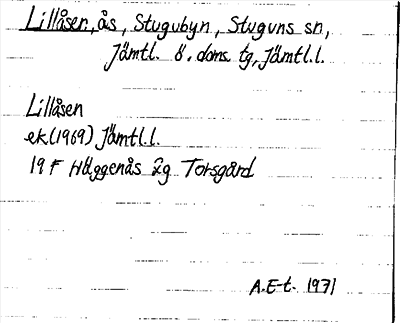 Lillåsen, ås, Stugubyn, Stuguns sn,
Jämtl. ö. doms. tg, Jämtl.l.
Lillåsen
ek.(1969) Jämtl.l.
19 F Häggenås 2g Torsgård
A.E-t. 1971